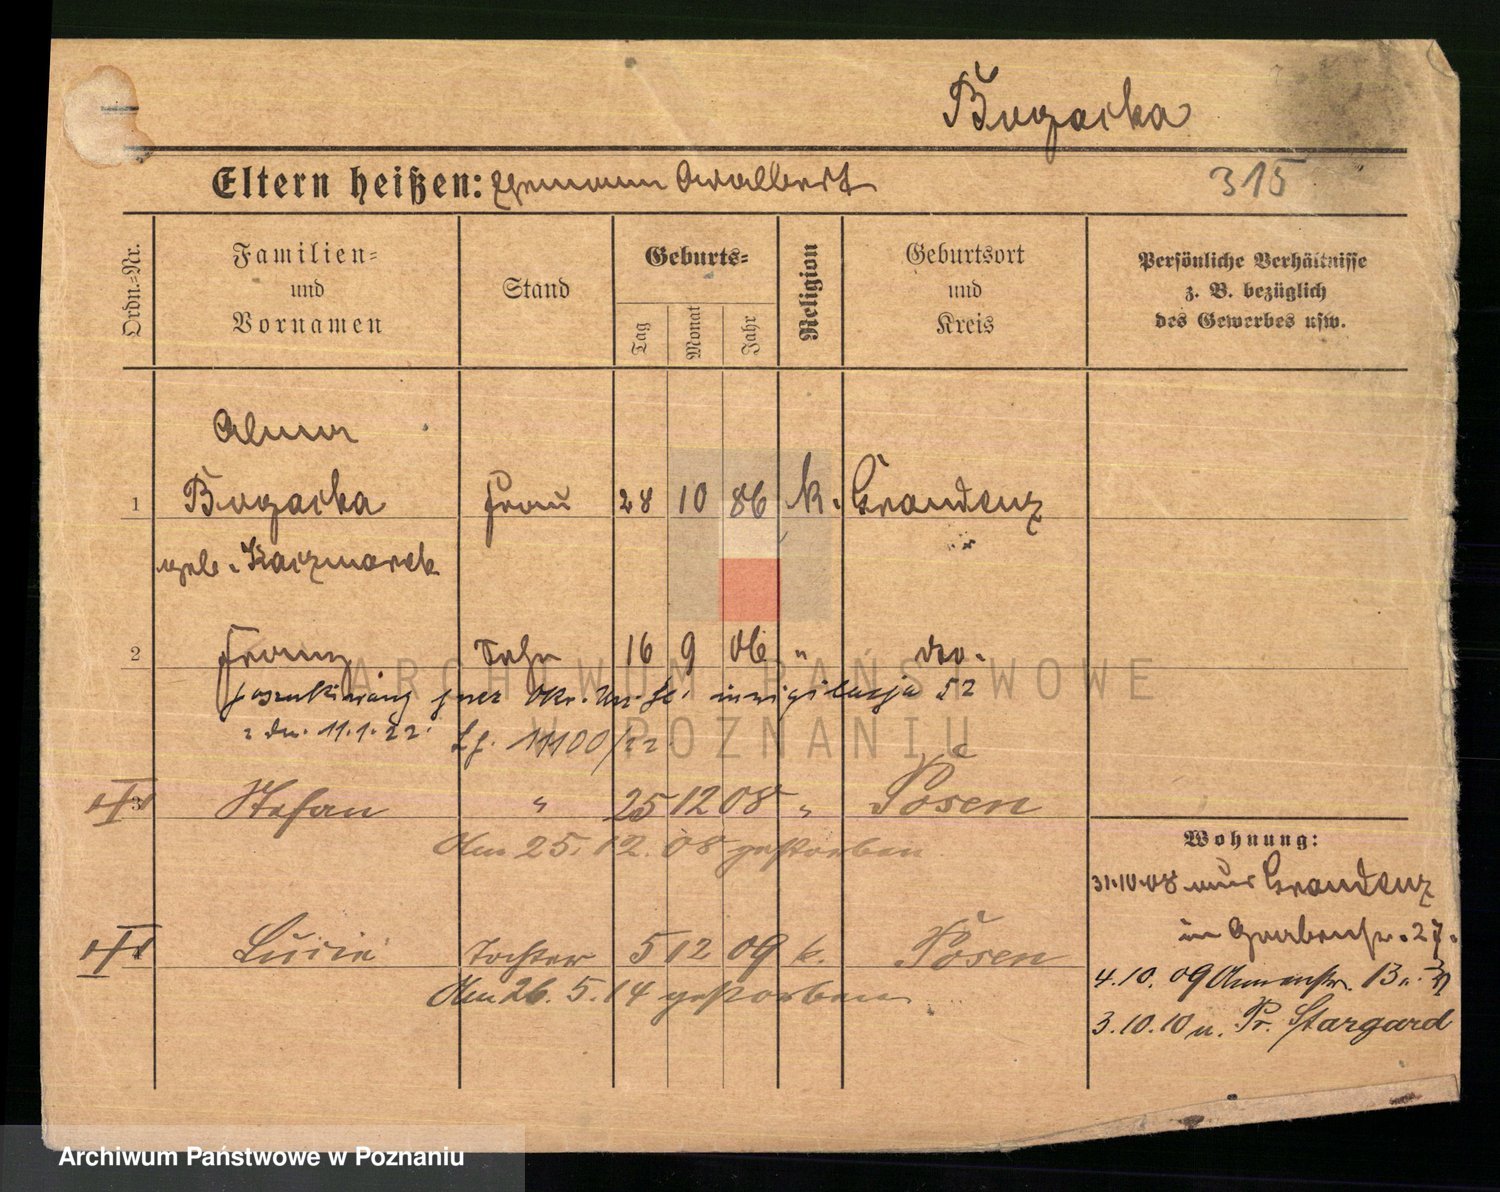 Bugacka
Eltern heißen: Ehemann Adalbert
315
Ordn.-Nr.
Familien-
und
Vornamen
Stand
Geburts-
Tag
Monat
Jahr
Religion
Geburtsort
und
Kreis
Persönliche Verhältnisse
z. B. bezüglich
des Gewerbes usw.
1
Bugacka Frau 28 10 86 k. Graudenz
geb. Kaczmarek
2 Franz Sohn 16 9 06 " do.
poszukiwany przez inwigilacja 52
z dn. 11.1.22. 11100/22
3 Stefan " 25 12 08 " Posen
Am 25. 12. 08 gestorben
Lucie Tochter 5 12 09 k. Posen
Am 26. 5. 14 gestorben
Wohnung:
31.10.08 aus Graudenz
in Grabenstr. 27.
4. 10. 09
3.10.10 n. Pr. Stargard
ARCHIWUM PAŃSTWOWE
W POZNANIU
Archiwum Państwowe w Poznaniu